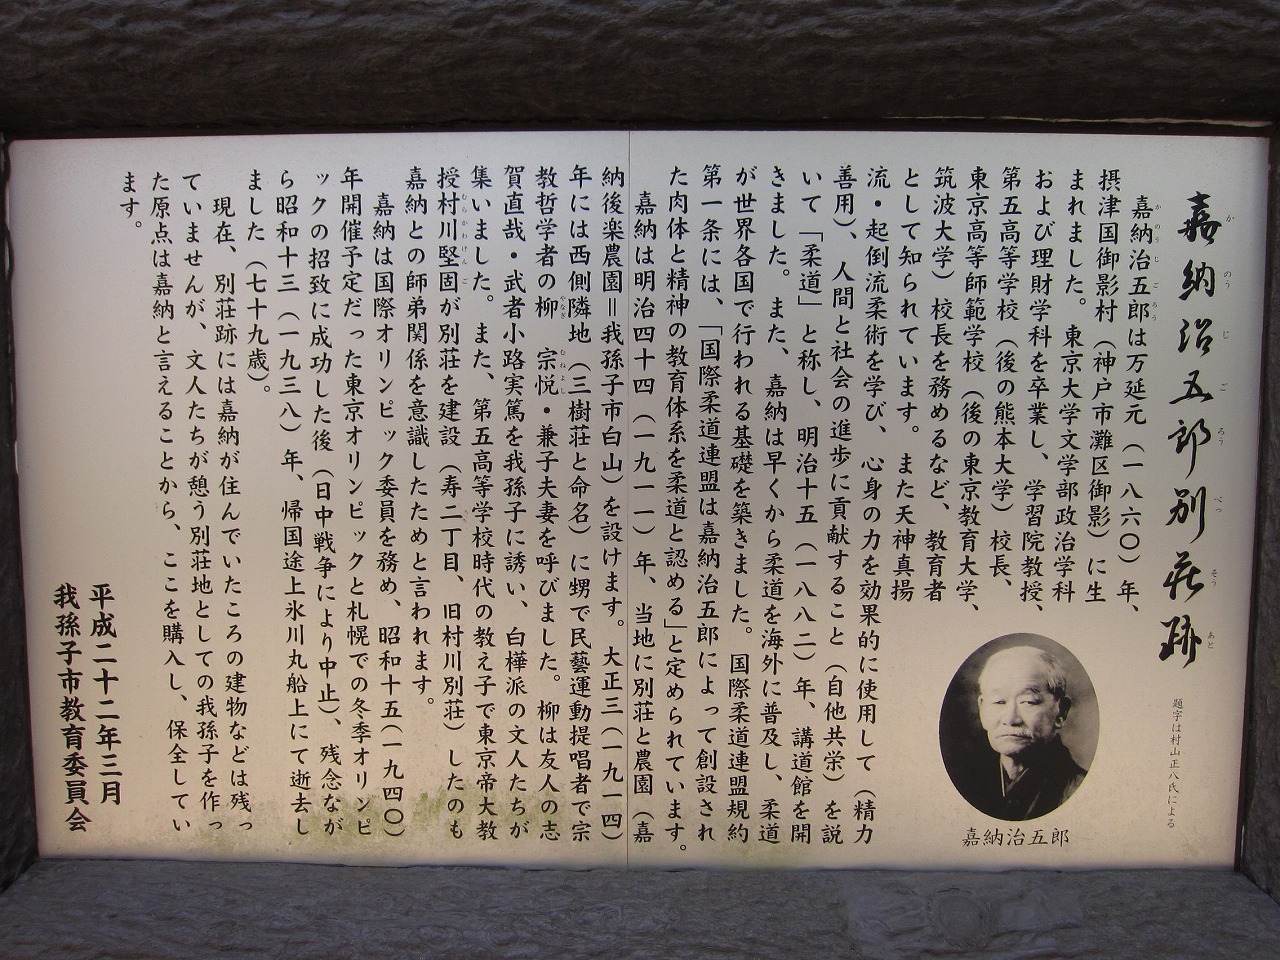 嘉納治五郎別荘跡
題字は村山正八氏による
嘉納治五郎は万延元(一八六〇)年、
摂津国御影村(神戸市灘区御影)に生
まれました。東京大学文学部政治学科
および理財学科を卒業し、学習院教授、
第五高等学校(後の熊本大学)校長、
東京高等師範学校(後の東京教育大学、
筑波大学)校長を務めるなど、教育者
として知られています。また天神真揚
流・起倒流柔術を学び、心身の力を効果的に使用して(精力
善用)、人間と社会の進歩に貢献すること(自他共栄)を説
いて「柔道」と称し、明治十五(一八八二)年、講道館を開
きました。また、嘉納は早くから柔道を海外に普及し、柔道
が世界各国で行われる基礎を築きました。国際柔道連盟規約
第一条には、「国際柔道連盟は嘉納治五郎によって創設され
た肉体と精神の教育体系を柔道と認める」と定められています。
嘉納は明治四十四(一九一一)年、当地に別荘と農園(嘉
納後楽農園＝我孫子市白山)を設けます。大正三(一九一四)
年には西側隣地(三樹荘と命名)に甥で民藝運動提唱者で宗
教哲学者の柳 宗悦・兼子夫妻を呼びました。柳は友人の志
賀直哉・武者小路実篤を我孫子に誘い、白樺派の文人たちが
集いました。また、第五高等学校時代の教え子で東京帝大教
授村川堅固が別荘を建設(寿二丁目、旧村川別荘)したのも
嘉納との師弟関係を意識したためと言われます。
嘉納は国際オリンピック委員を務め、昭和十五(一九四〇)
年開催予定だった東京オリンピックと札幌での冬季オリンピ
ックの招致に成功した後(日中戦争により中止)、残念なが
ら昭和十三(一九三八)年、帰国途上氷川丸船上にて逝去し
ました(七十九歳)。
現在、別荘跡には嘉納が住んでいたころの建物などは残っ
ていませんが、文人たちが憩う別荘地としての我孫子を作っ
た原点は嘉納と言えることから、ここを購入し、保全してい
ます。
平成二十二年三月
我孫子市教育委員会
嘉納治五郎